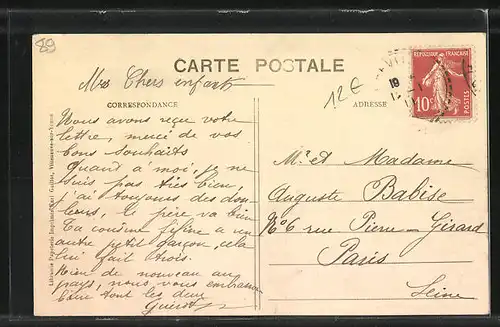 89
CARTE POSTALE
Mes Chers enfants
12€
CORRESPONDANCE
ADRESSE
REPUBLIQUE FRANÇAISE
10c
POSTES
Nous avons reçu votre
lettre, merci de vos
bons souhaits
Quand à moi, je ne
suis pas très bien,
j'ai toujours des dou-
leurs, le père va bien
Ta cousine a un
autre petit garçon, cela
lui fait trois.
Rien de nouveau au
pays, nous vous embrassons
tout les deux
Mr et Madame
Auguste Babise
No 6 rue Pierre Girard
Paris
Seine
Librairie Papeterie Imprimerie